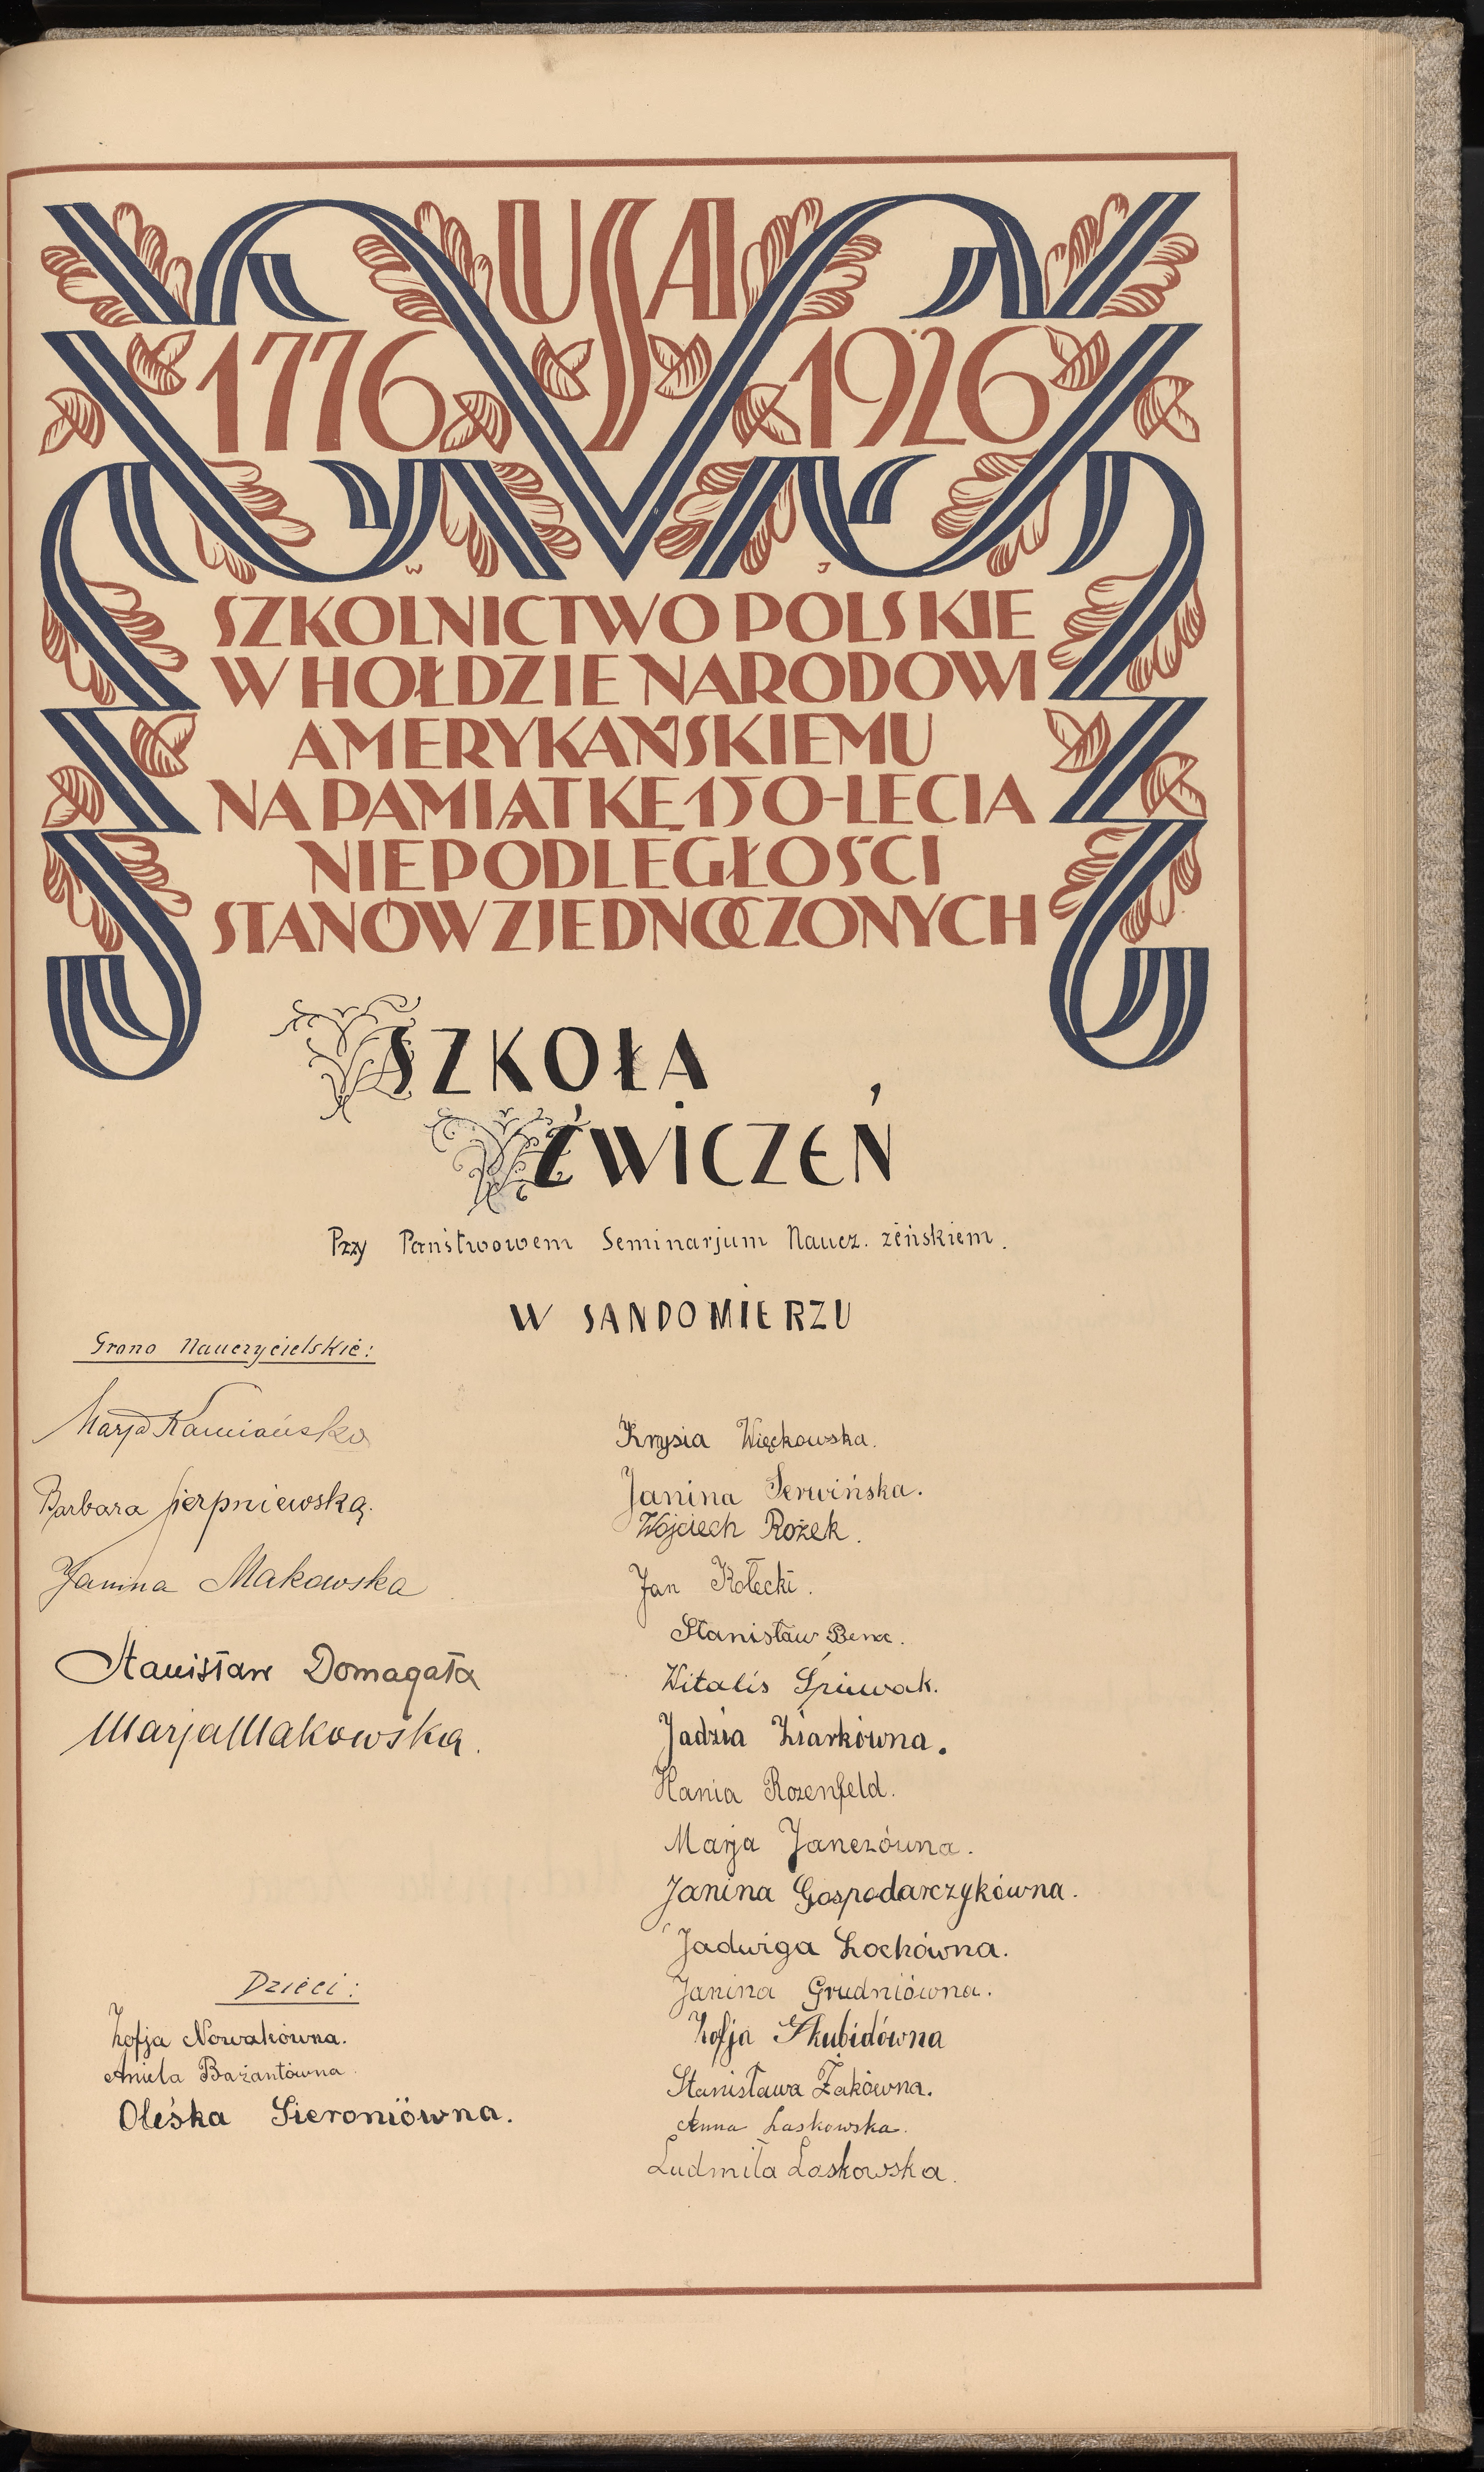 USA
1776 1926
W J
SZKOLNICTWO POLSKIE
W HOŁDZIE NARODOWI
AMERYKAŃSKIEMU
NA PAMIĄTKĘ 150-LECIA
NIEPODLEGŁOŚCI
STANÓW ZJEDNOCZONYCH
SZKOŁA
ĆWICZEŃ
Przy Państwowem Seminarjum Naucz. żeńskiem.
W SANDOMIERZU
Grono Nauczycielskie:
Marja Kamieńska
Barbara Sierpniewska.
Janina Makowska
Stanisław Domagała
Marja Makowska.
Dzieci:
Zofja Nowakówna.
Aniela Bażantówna
Oleśka Sieroniówna.
Krysia Więckowska.
Janina Serwińska.
Wojciech Rożek.
Jan Kołecki.
Stanisław Bena.
Witalis Śpiewak.
Jadzia Ziarkówna.
Hania Rozenfeld.
Marja Janczówna.
Janina Gospodarczykówna.
Jadwiga Łochówna.
Janina Grudniówna.
Zofja Skubidówna
Stanisława Żakówna.
Anna Laskowska.
Ludmiła Laskowska.